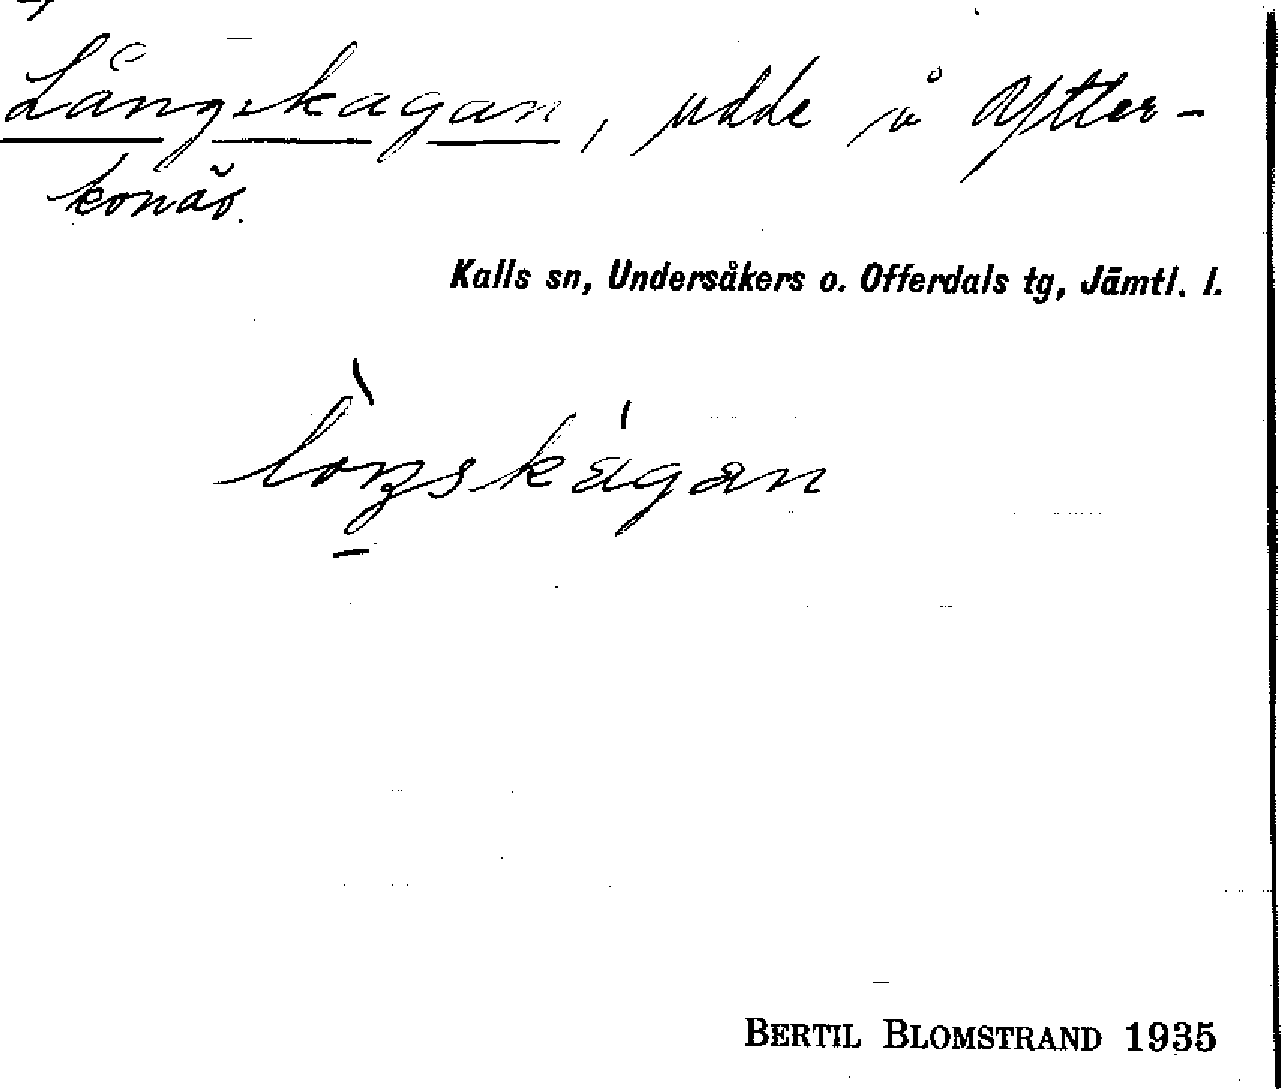 Långskagan, udde å Ytter-
konäs.
Kalls sn, Undersåkers o. Offerdals tg, Jämtl. l.
lòŋskágan
BERTIL BLOMSTRAND 1935